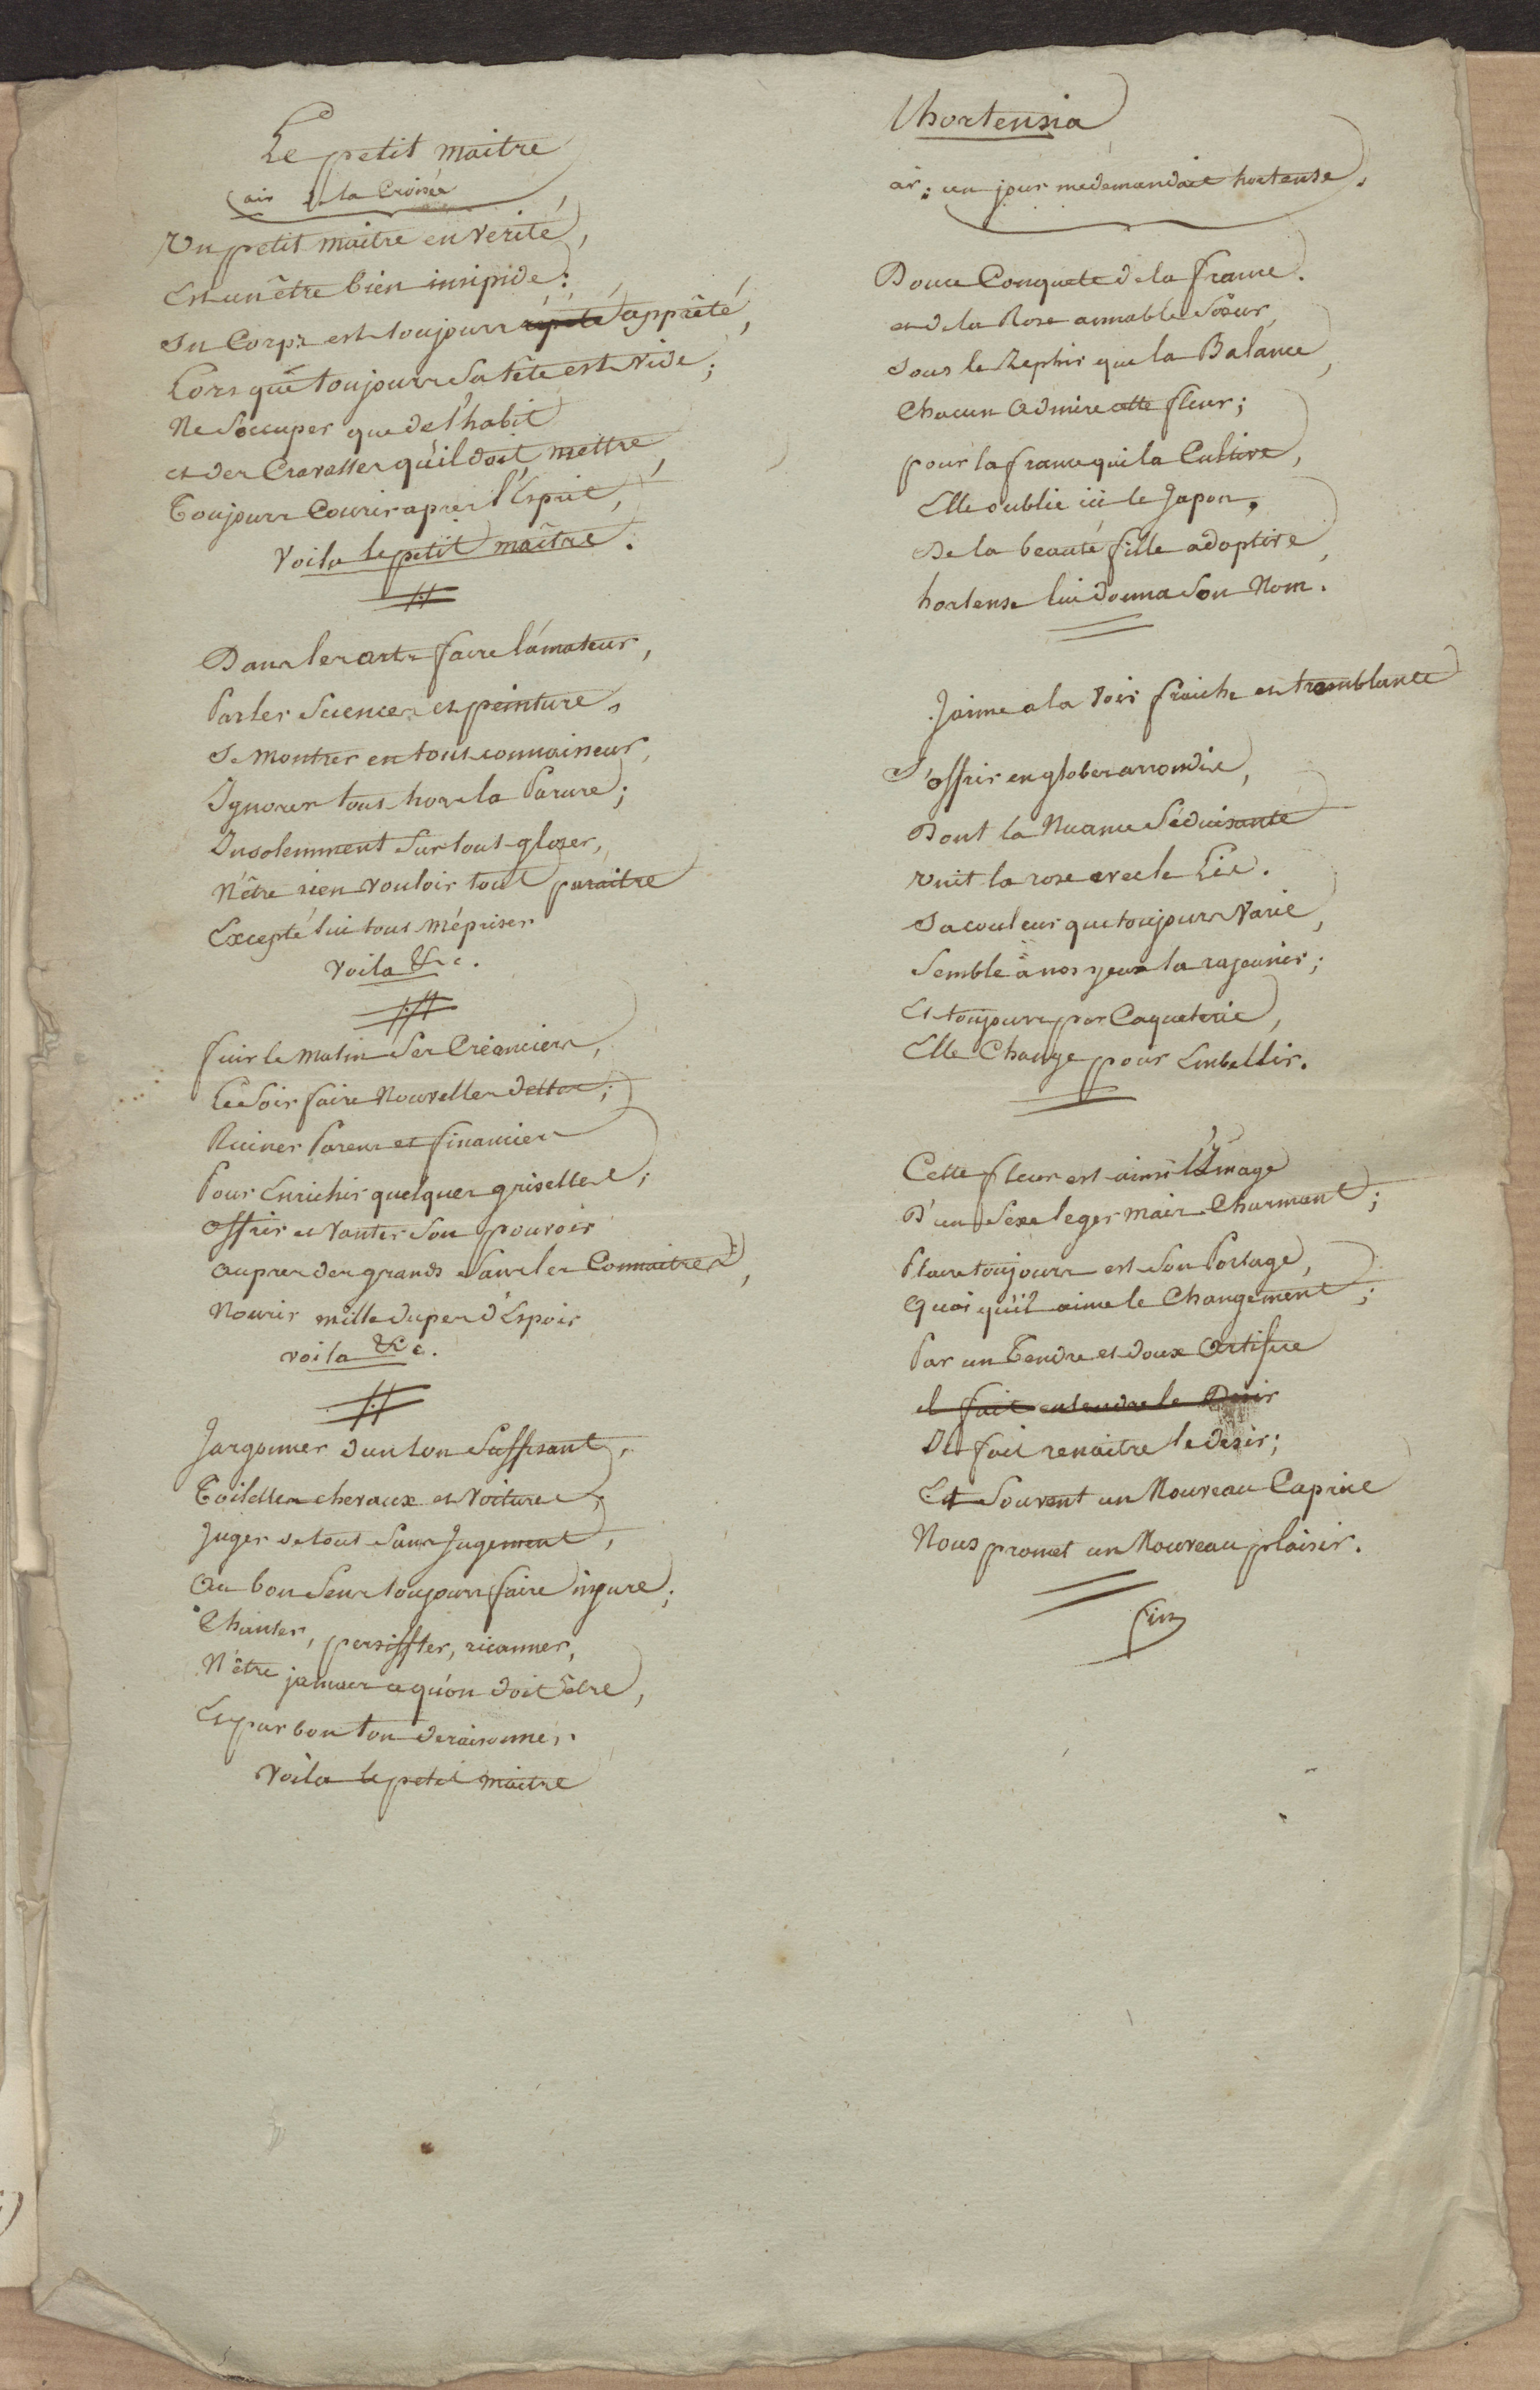 Le petit maitre
air de la Croisée
Un petit maitre en verité,
Est un être bien insipide:
Su Corps est toujours répété apprêté,
Lors que toujours sa tête est vide;
Ne s'occuper que de l'habit
et des Cravattes qu'il doit mettre,
Toujours Courir apres l'Esprit,
Voila le petit maître.
Dans les arts faire l'amateur,
Parler Sciences et peinture,
Se montrer en tout connaisseur,
Ignorer tous hors la Parure;
Insolemment Sur tout gloser,
N'être rien vouloir tout paraitre
Excepté lui tous mépriser
Voila &c.
fuir le matin Ses Créanciers,
Le Soir faire Nouvelles dettes;
Ruiner Parens et financiers
Pour Enrichir quelques grisettes;
offrir et vanter Son pouvoir
aupres des grands Sans les Connaitre,
Nourir mille dupes d'Espoir
voila &c.
Jargonner d'un ton Suffisant,
Toilettes chevaux et voiture,
Juger de tout Sans Jugement,
Au bon Sens toujours faire injure;
Chanter, persiffler, ricanner,
N'être jamais ce qu'on doit être,
Et par bon ton deraisonner.
Voila le petit maitre
l'hortensia
air: un jour me demandait hortense.
Douce Conquete de la france.
et de la Rose aimable Soeur,
Sous le Zephir que la Balance,
Chacun admire cette fleur;
pour la france qui la Cultive,
Elle oublie ici le Japon,
De la beauté fille adoptive,
hortense lui donna Son Nom.
J'aime a la voir fraiche et tremblante
S'offrir en globes arrondis,
Dont la Nuance Séduisante
Unit la rose avec le Lis.
Sa couleur que toujours varie,
Semble à nos yeux la rajeunir;
Et toujours par Caqueterie,
Elle Change pour Embellir.
Cette fleur est ainsi l'Image
D'un Sexe leger mais Charmant;
Plaire toujours est Son Partage,
Quoi qu'il aime le Changement;
Par un Tendre et doux Artifice
il fait entendre le Desir
Il fait renaitre le desir;
Et Souvent un Nouveau Caprice
Nous promet un Nouveau plaisir.
fin